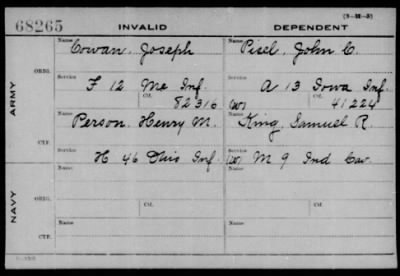 (3-M-3)
68265 INVALID DEPENDENT
Name Name
Cowan, Joseph Pisel, John C.
ORIG. Service Service
F 12 Me Inf. A 13 Iowa Inf.
Ctf. 82316 (W) Ctf. 41224
ARMY
Name Name
Person, Henry M. King, Samuel R.
CTF. Service Service
H 46 Ohio Inf. (W) M 9 Ind Cav.
NAVY
Name Name
ORIG. Service Service
Ctf. Ctf.
Name Name
CTF. Service Service